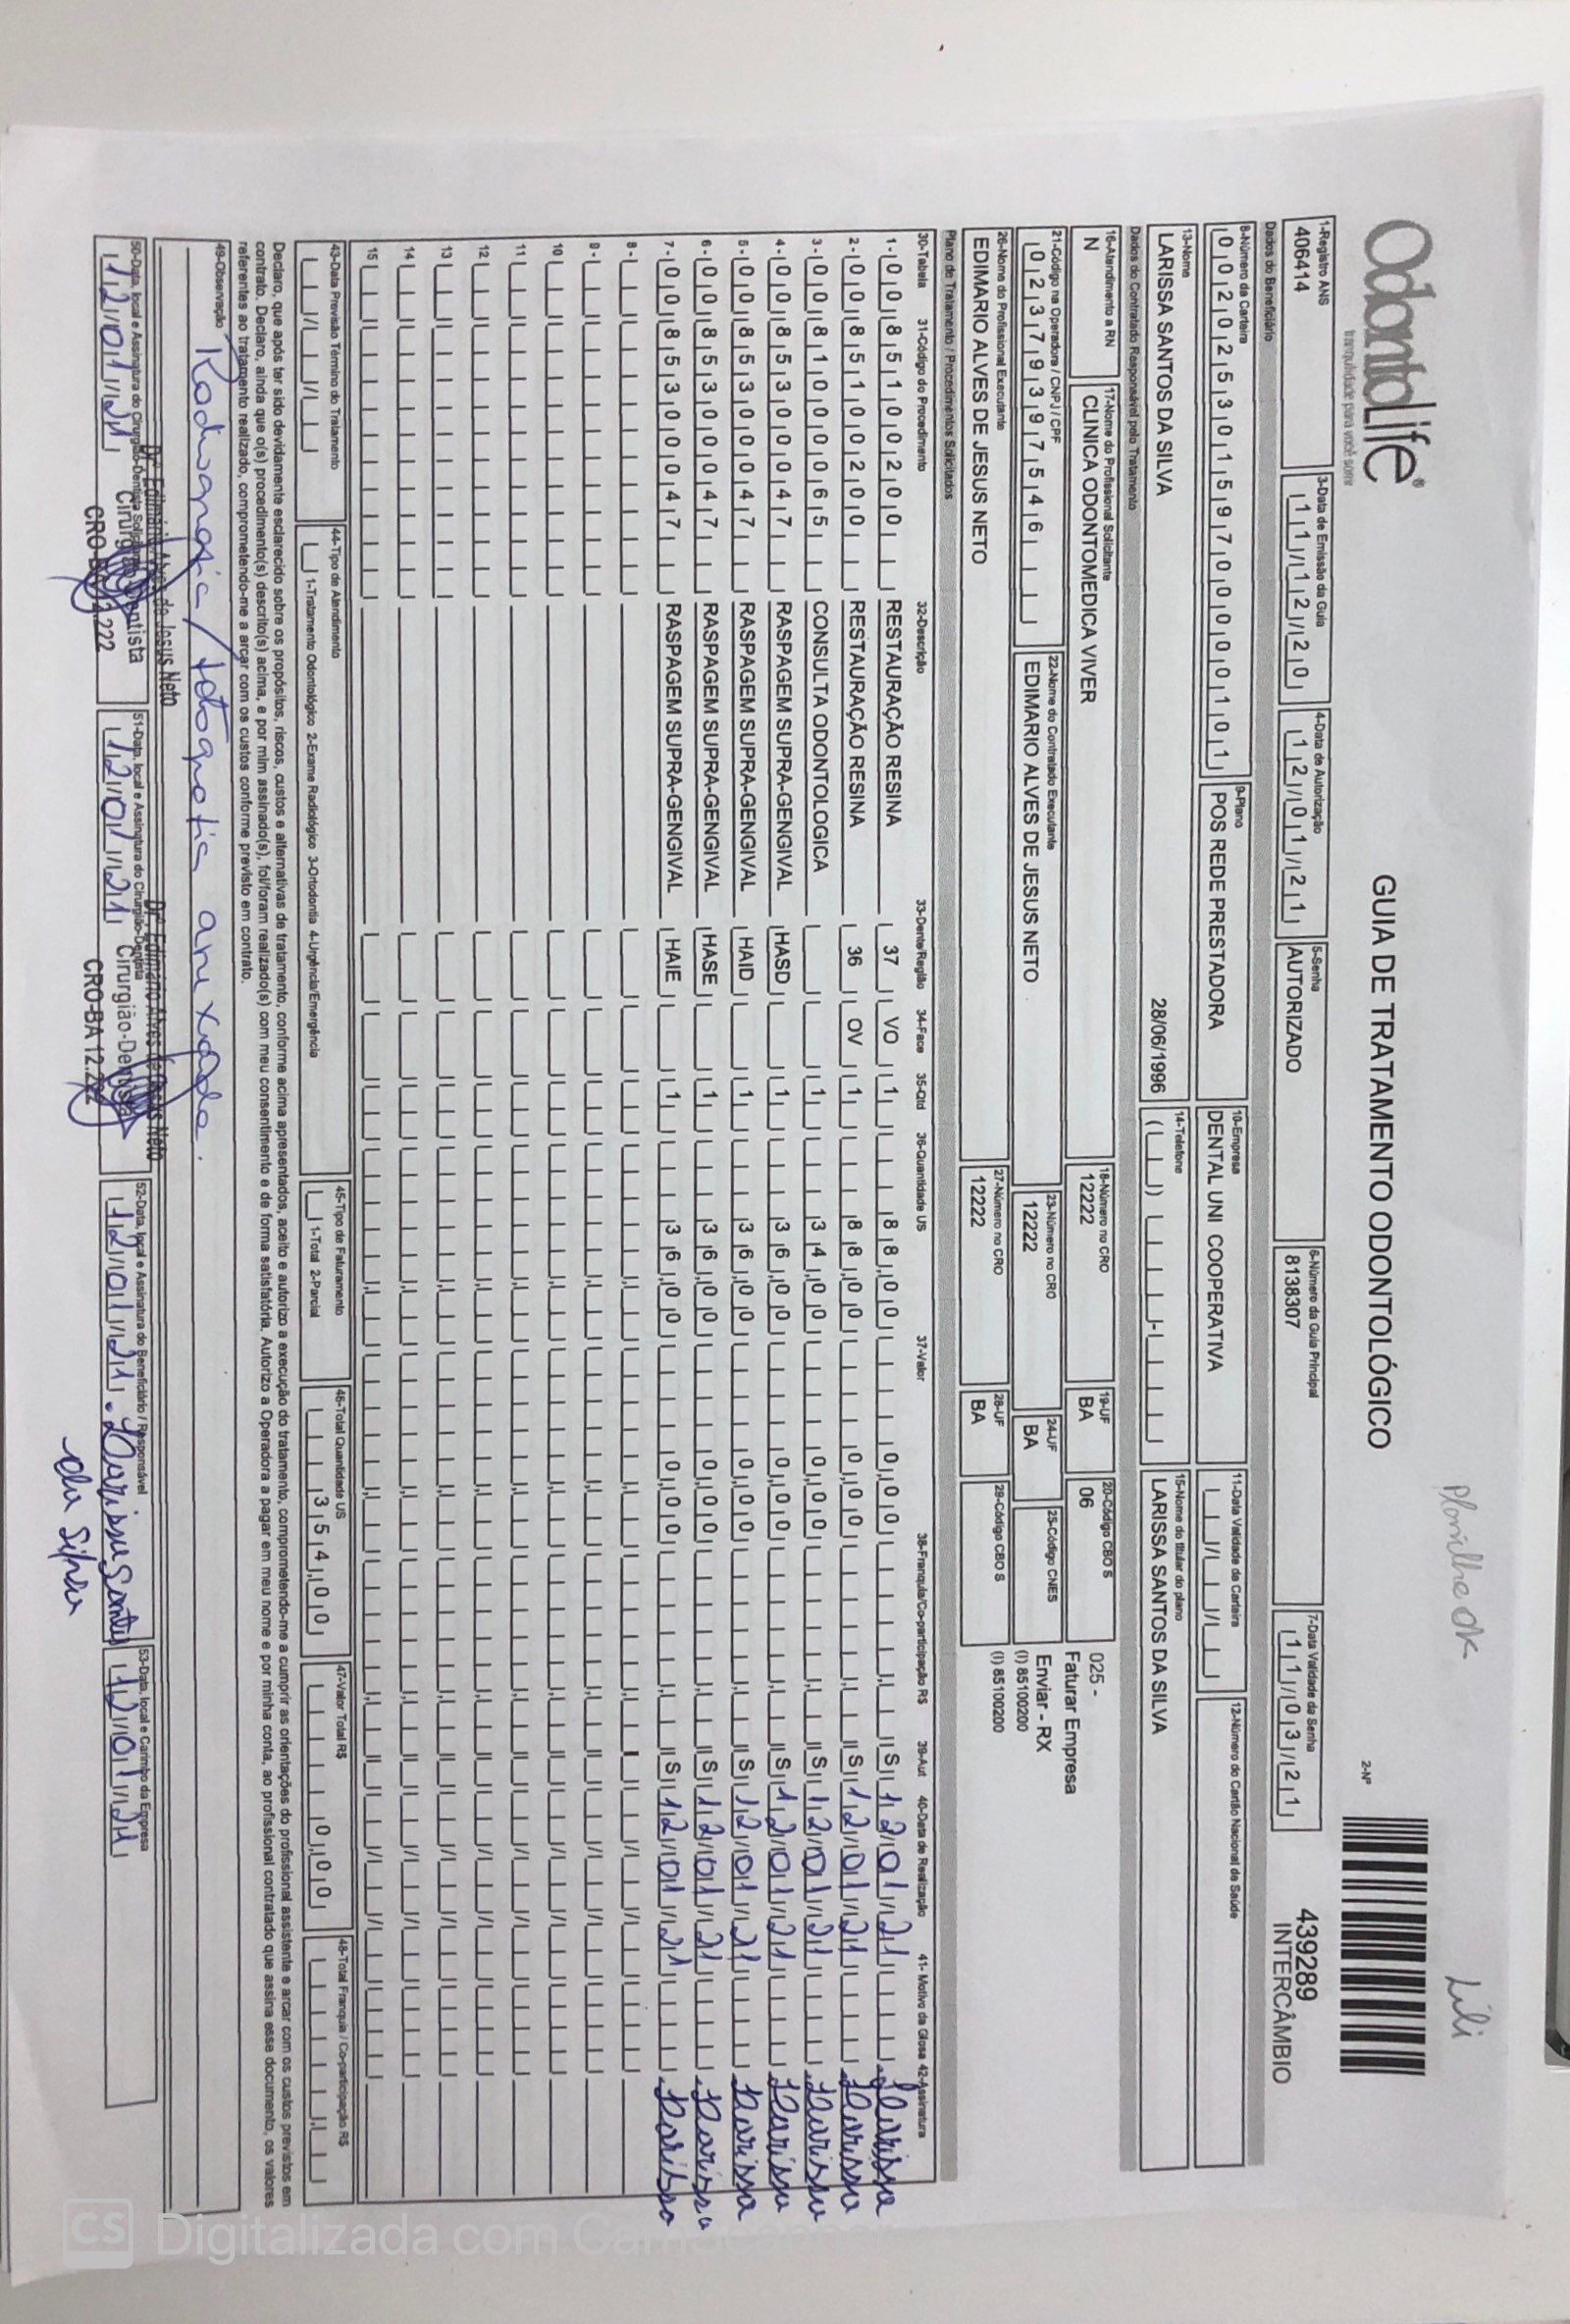 Planilha OK
Lili
OdontoLife®
tranquilidade para você sorrir
GUIA DE TRATAMENTO ODONTOLÓGICO
2-Nº
439289
INTERCÂMBIO
1-Registro ANS
406414
3-Data de Emissão da Guia
11/12/20
4-Data de Autorização
12/01/21
5-Senha
AUTORIZADO
6-Número da Guia Principal
8138307
7-Data Validade da Senha
11/03/21
Dados do Beneficiário
8-Número da Carteira
00202530159700000101
9-Plano
POS REDE PRESTADORA
10-Empresa
DENTAL UNI COOPERATIVA
11-Data Validade da Carteira
12-Número do Cartão Nacional de Saúde
13-Nome
LARISSA SANTOS DA SILVA 28/06/1996
14-Telefone
15-Nome do titular do plano
LARISSA SANTOS DA SILVA
Dados do Contratado Responsável pelo Tratamento
16-Atendimento a RN
N
17-Nome do Profissional Solicitante
CLINICA ODONTOMEDICA VIVER
18-Número no CRO
12222
19-UF
BA
20-Código CBO S
06
025 -
Faturar Empresa
21-Código na Operadora / CNPJ / CPF
02379397546
22-Nome do Contratado Executante
EDIMARIO ALVES DE JESUS NETO
23-Número no CRO
12222
24-UF
BA
25-Código CNES
Enviar - RX
(I) 85100200
(I) 85100200
26-Nome do Profissional Executante
EDIMARIO ALVES DE JESUS NETO
27-Número no CRO
12222
28-UF
BA
29-Código CBO S
Plano de Tratamento / Procedimentos Solicitados
30-Tabela 31-Código do Procedimento 32-Descrição 33-Dente/Região 34-Face 35-Qtd 36-Quantidade US 37-Valor 38-Franquia/Co-participação R$ 39-Aut 40-Data de Realização 41- Motivo da Glosa 42-Assinatura
1- 00 85100200 RESTAURAÇÃO RESINA 37 VO 1 88,00 0,00 S 12/01/21 Larissa
2- 00 85100200 RESTAURAÇÃO RESINA 36 OV 1 88,00 0,00 S 12/01/21 Larissa
3- 00 81000065 CONSULTA ODONTOLOGICA 1 34,00 0,00 S 12/01/21 Larissa
4- 00 85300047 RASPAGEM SUPRA-GENGIVAL HASD 1 36,00 0,00 S 12/01/21 Larissa
5- 00 85300047 RASPAGEM SUPRA-GENGIVAL HAID 1 36,00 0,00 S 12/01/21 Larissa
6- 00 85300047 RASPAGEM SUPRA-GENGIVAL HASE 1 36,00 0,00 S 12/01/21 Larissa
7- 00 85300047 RASPAGEM SUPRA-GENGIVAL HAIE 1 36,00 0,00 S 12/01/21 Larissa
8-
9-
10
11
12
13
14
15
43-Data Previsão Término do Tratamento
44-Tipo de Atendimento
1-Tratamento Odontológico 2-Exame Radiológico 3-Ortodontia 4-Urgência/Emergência
45-Tipo de Faturamento
1-Total 2-Parcial
46-Total Quantidade US
354,00
47-Valor Total R$
0,00
48-Total Franquia / Co-participação R$
Declaro, que após ter sido devidamente esclarecido sobre os propósitos, riscos, custos e alternativas de tratamento, conforme acima apresentados, aceito e autorizo a execução do tratamento, comprometendo-me a cumprir as orientações do profissional assistente e arcar com os custos previstos em
contrato. Declaro, ainda que o(s) procedimento(s) descrito(s) acima, e por mim assinado(s), foi/foram realizado(s) com meu consentimento e de forma satisfatória. Autorizo a Operadora a pagar em meu nome e por minha conta, ao profissional contratado que assina esse documento, os valores
referentes ao tratamento realizado, comprometendo-me a arcar com os custos conforme previsto em contrato.
49-Observação
Radiografia / fotografia anexada.
50-Data, local e Assinatura do Cirurgião-Dentista Solicitante
12/01/21
Drº Edimário Alves de Jesus Neto
Cirurgião-Dentista
CRO-BA 12.222
51-Data, local e Assinatura do Cirurgião-Dentista
12/01/21
Drº Edimário Alves de Jesus Neto
Cirurgião-Dentista
CRO-BA 12.222
52-Data, local e Assinatura do Beneficiário / Responsável
12/01/21. Larissa Santos
da Silva
53-Data, local e Carimbo da Empresa
12/01/21
CS Digitalizada com CamScanner